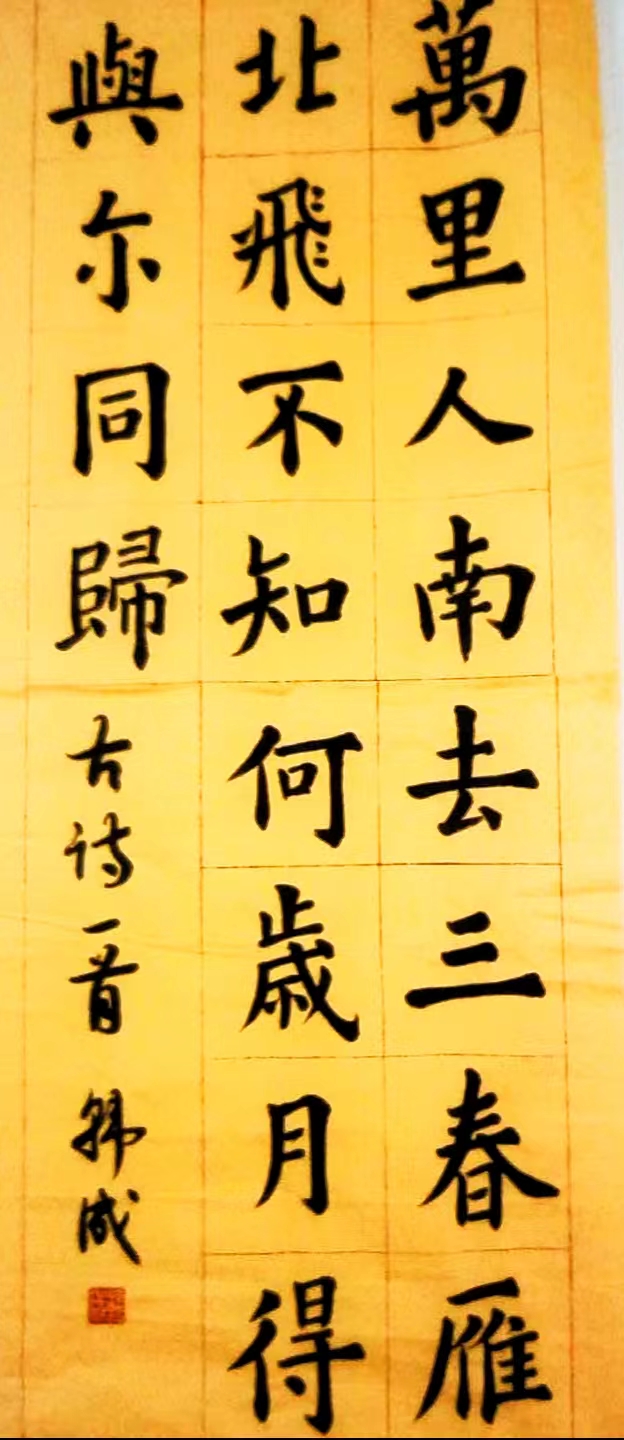 萬里人南去三春雁
北飛不知何歲月得
與尔同歸
古诗一首 韩成